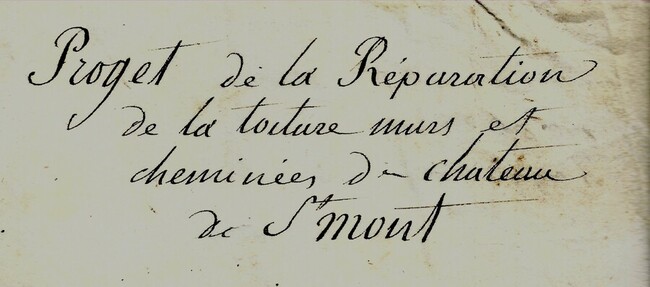 Proget de la Réparation
de la toiture murs et
cheminées du chateau
de St mont